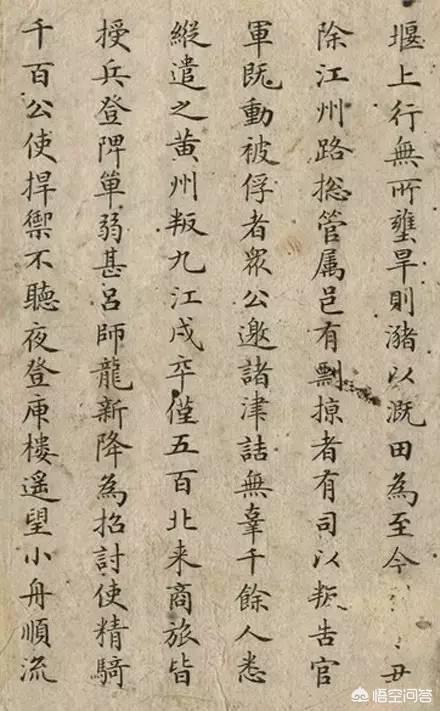 堰上行無所壅旱則瀦以溉田為至今丑
除江州路揔管属邑有剽掠者有司以叛告官
軍既動被俘者眾公邀諸津詰無辜千餘人悉
縱遣之黃州叛九江戍卒僅五百北来商旅皆
授兵登陴單弱甚吕師龍新降為招討使精騎
千百公使捍禦不聽夜登庾楼遥望小舟順流
悟空问答